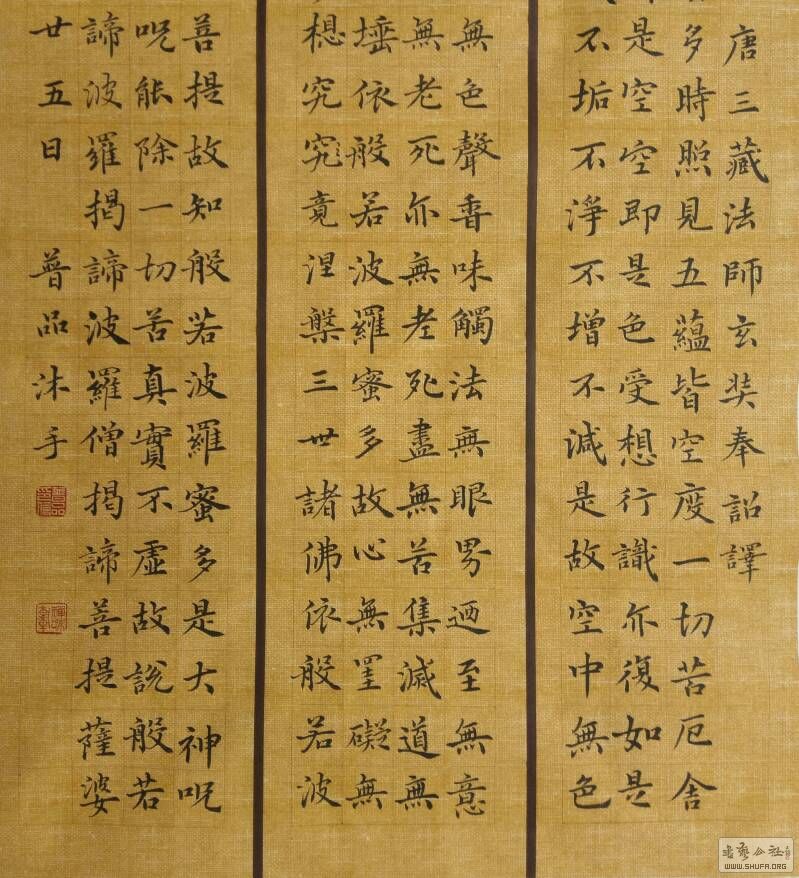 唐三藏法師玄奘奉詔譯
多時照見五蘊皆空度一切苦厄舍
是空空即是色受想行識亦復如是
不垢不淨不增不減是故空中無色
無色聲香味觸法無眼界迺至無意
無老死亦無老死盡無苦集滅道無
埵依般若波羅蜜多故心無罣礙無
想究究竟涅槃三世諸佛依般若波
菩提故知般若波羅蜜多是大神呪
呪能除一切苦真實不虛故說般若
諦波羅揭諦波羅僧揭諦菩提薩婆
廿五日 普品沐手
WWW.SHUFA.ORG